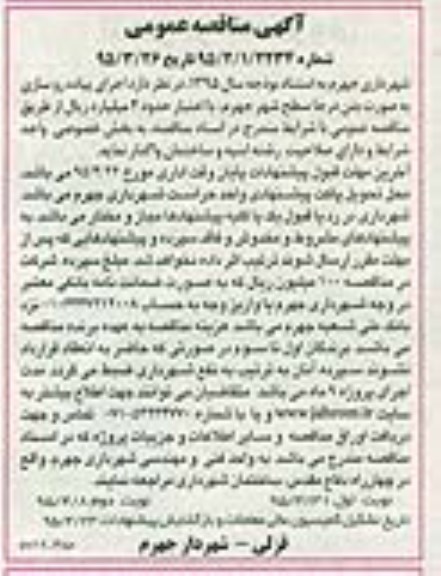 آگهی مناقصه عمومی
شماره ۹۵/۲/۱/۳۲۳۲ تاریخ ۹۵/۳/۲۶
شهرداری جهرم به استناد بودجه سال ۱۳۹۵، در نظر دارد اجرای پیاده رو سازی
به صورت بتن درجا سطح شهر جهرم، با اعتبار حدود ۲ میلیارد ریال از طریق
مناقصه عمومی با شرایط مندرج در اسناد مناقصه به بخش خصوصی واجد
شرایط و دارای صلاحیت رشته ابنیه و ساختمان واگذار نماید.
آخرین مهلت قبول پیشنهادات پایان وقت اداری مورخ می باشد.
محل تحویل پاکت پیشنهادی واحد حراست شهرداری جهرم می باشد.
شهرداری در رد یا قبول یک یا کلیه پیشنهادها مجاز و مختار می باشد. به
پیشنهادهای مشروط و مخدوش و فاقد سپرده و پیشنهادهایی که پس از
مهلت مقرر ارسال شوند ترتیب اثر داده نخواهد شد. مبلغ سپرده شرکت
در مناقصه ۱۰۰ میلیون ریال که به صورت ضمانت نامه بانکی معتبر
در وجه شهرداری جهرم یا واریز وجه به حساب نزد
بانک ملی شعبه جهرم می باشد. هزینه مناقصه به عهده برنده مناقصه
می باشد. برندگان اول تا سوم در صورتی که حاضر به انعقاد قرارداد
نشوند سپرده آنان به ترتیب به نفع شهرداری ضبط می گردد. مدت
اجرای پروژه ۹ ماه می باشد. متقاضیان می توانند جهت اطلاع بیشتر به
سایت www.jahrom.ir و یا با شماره تماس و جهت
دریافت اوراق مناقصه و سایر اطلاعات و جزییات پروژه که در اسناد
مناقصه مندرج می باشد به واحد فنی و مهندسی شهرداری جهرم واقع
در چهارراه دفاع مقدس ساختمان شهرداری مراجعه نمایند.
نوبت اول نوبت دوم
تاریخ تشکیل کمیسیون عالی معاملات و بازگشایش پیشنهادات
قزلی - شهردار جهرم